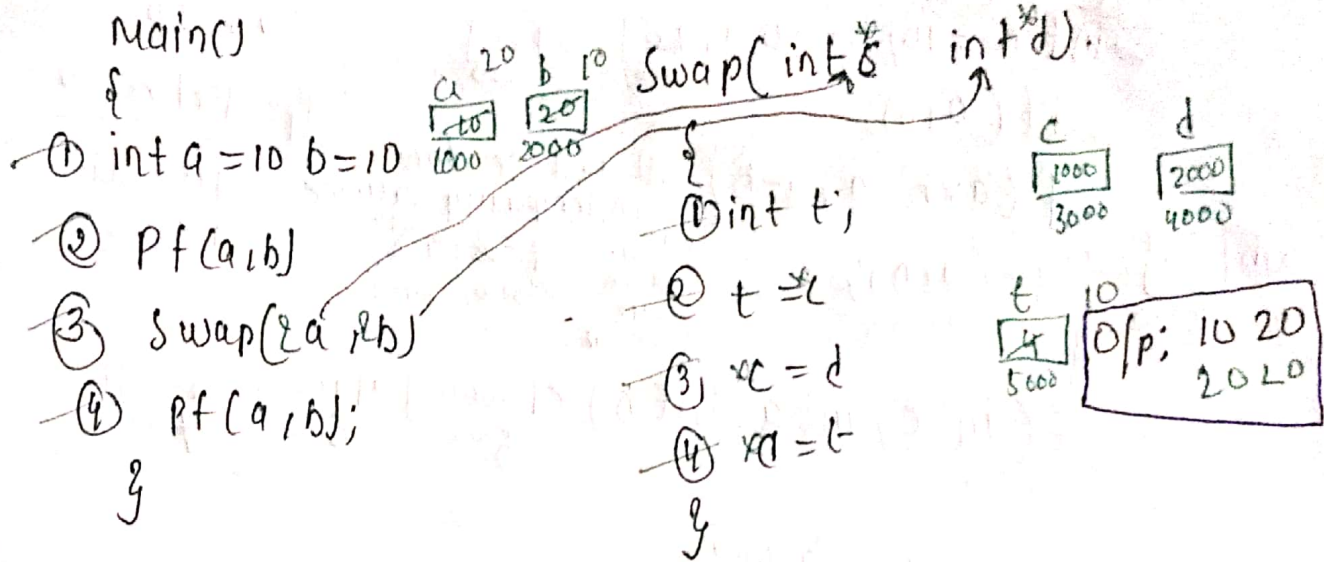 Main()
{
① int a = 10 b = 10
② Pf(a,b)
③ Swap(&a, &b)
④ Pf(a,b);
}
a 20 b 10
10 20
1000 2000
Swap(int *c int *d).
{
① int t;
② t = *c
③ *c = d
④ *d = t
}
c d
1000 2000
3000 4000
t 10
5000
O/p; 10 20
20 10